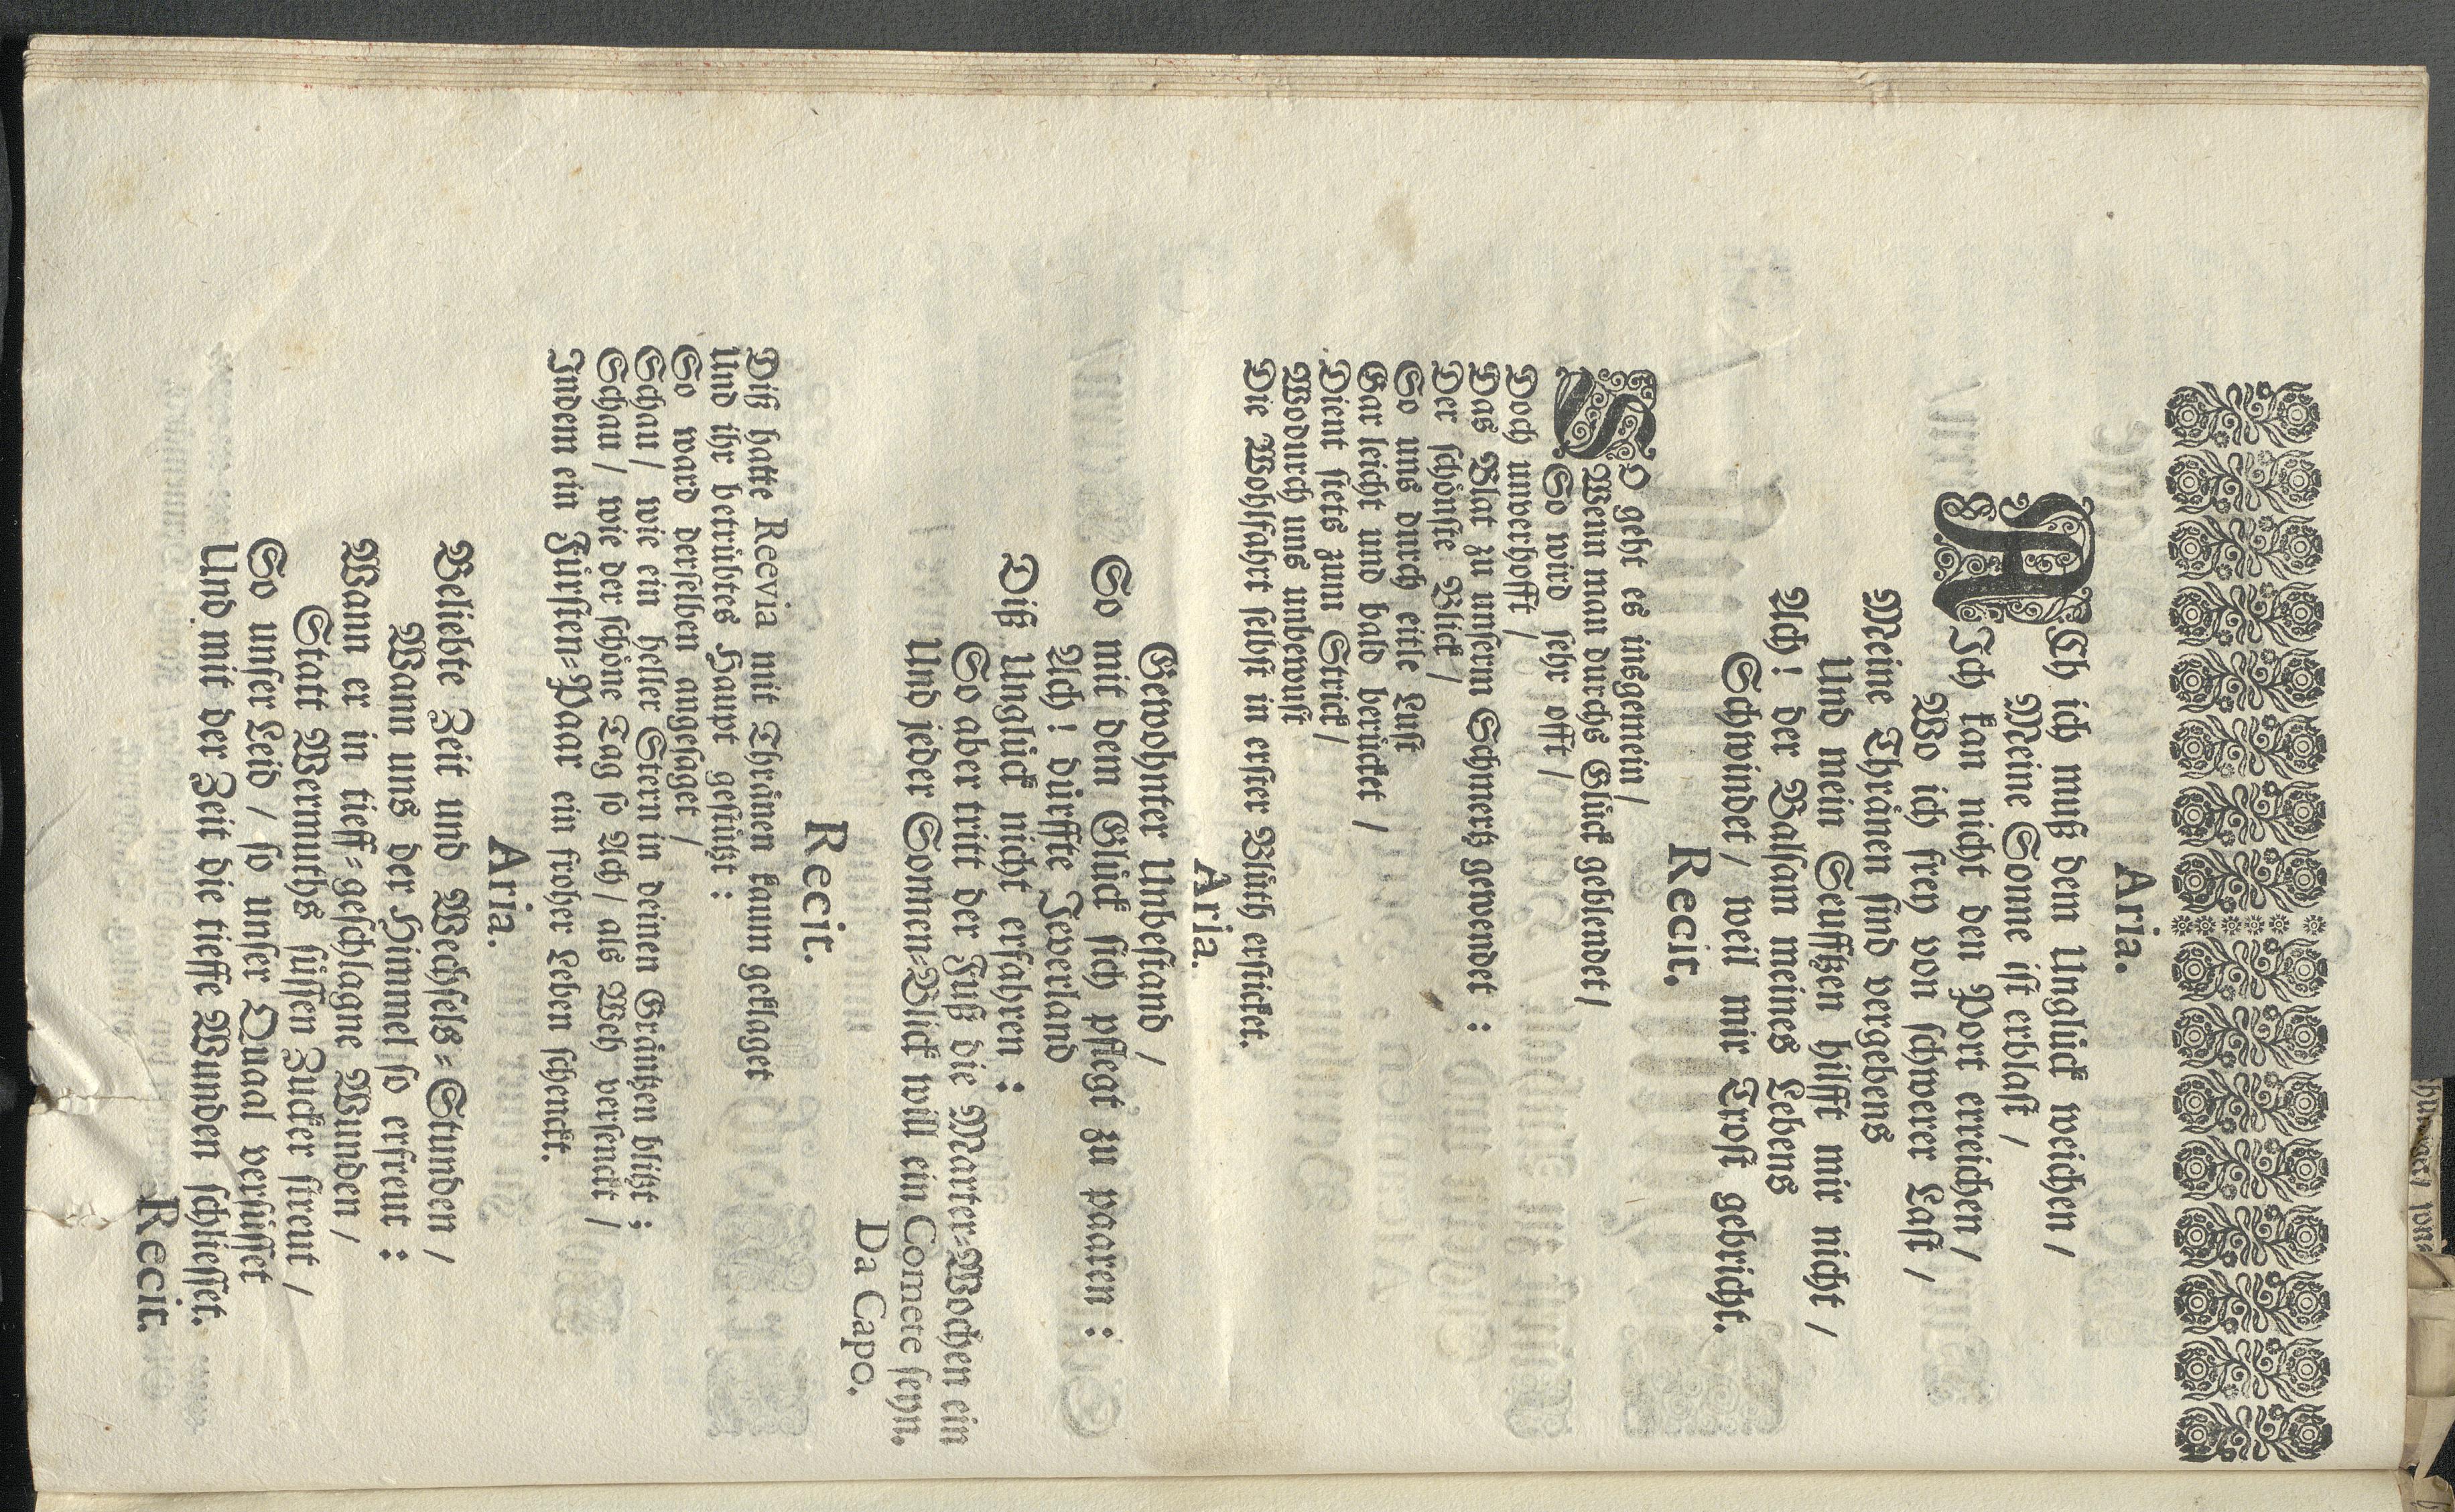 Aria.
ACh ich muß dem Unglück weichen /
Meine Sonne ist erblast /
Ich kan nicht den Port erreichen /
Wo ich frey von schwerer Last /
Meine Thränen sind vergebens
Und mein Seufftzen hilfft mir nicht /
Ach! der Balsam meines Lebens
Schwindet / weil mir Trost gebricht.
Recit.
SO geht es insgemein /
Wenn man durchs Glück geblendet /
So wird sehr offt /
Doch unverhofft /
Das Blat zu unserm Schmertz gewendet :
Der schönste Blick /
So uns durch eitle Lust
Gar leicht und bald berücket /
Dient stets zum Strick /
Wodurch uns unbewust
Die Wohlfahrt selbst in erster Blüth ersticket.
Aria.
Gewohnter Unbestand /
So mit dem Glück sich pflegt zu paaren :
Ach! dürffte Jeverland
Diß Unglück nicht erfahren :
So aber tritt der Fuß die Marter-Wochen ein
Und jeder Sonnen-Blick will ein Comete seyn.
Da Capo.
Recit.
Diß hatte Reevia mit Thränen kaum geklaget
Und ihr betrübtes Haupt gestützt :
So ward derselben angesaget /
Schau / wie ein heller Stern in deinen Gräntzen blitzt ;
Schau / wie der schöne Tag so Ach / als Weh versenckt /
Indem ein Fürsten-Paar ein froher Leben schenckt.
Aria.
Beliebte Zeit und Wechsels-Stunden /
Wann uns der Himmel so erfreut :
Wann er in tieff-geschlagne Wunden /
Statt Wermuths süssen Zucker streut /
So unser Leid / so unser Quaal versüsset
Und mit der Zeit die tieffe Wunden schliesset.
Recit.